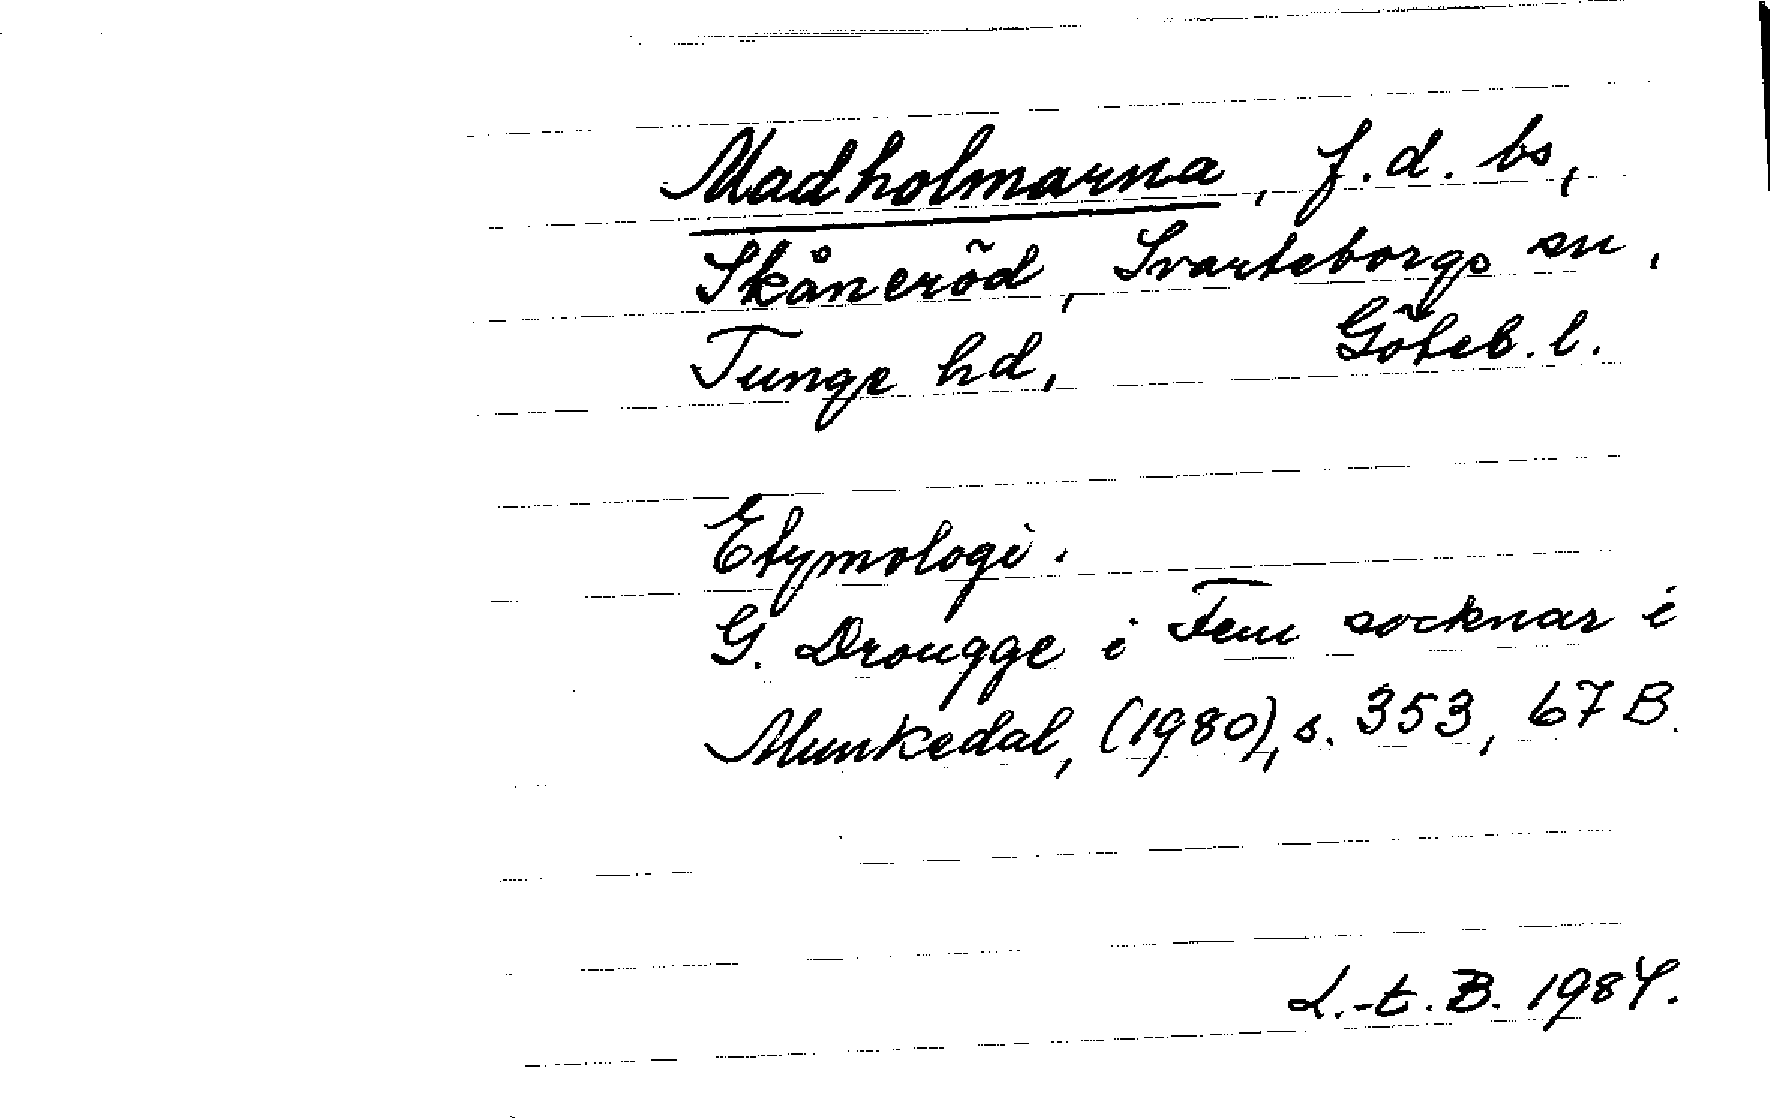 Madholmarna, f.d. bs,
Skåneröd, Svarteborgs sn,
Tunge hd, Göteb. l.
Etymologi.
G. Drougge i Fem socknar i
Munkedal, (1980), s. 353, 67 B.
L.-t. B. 1984.